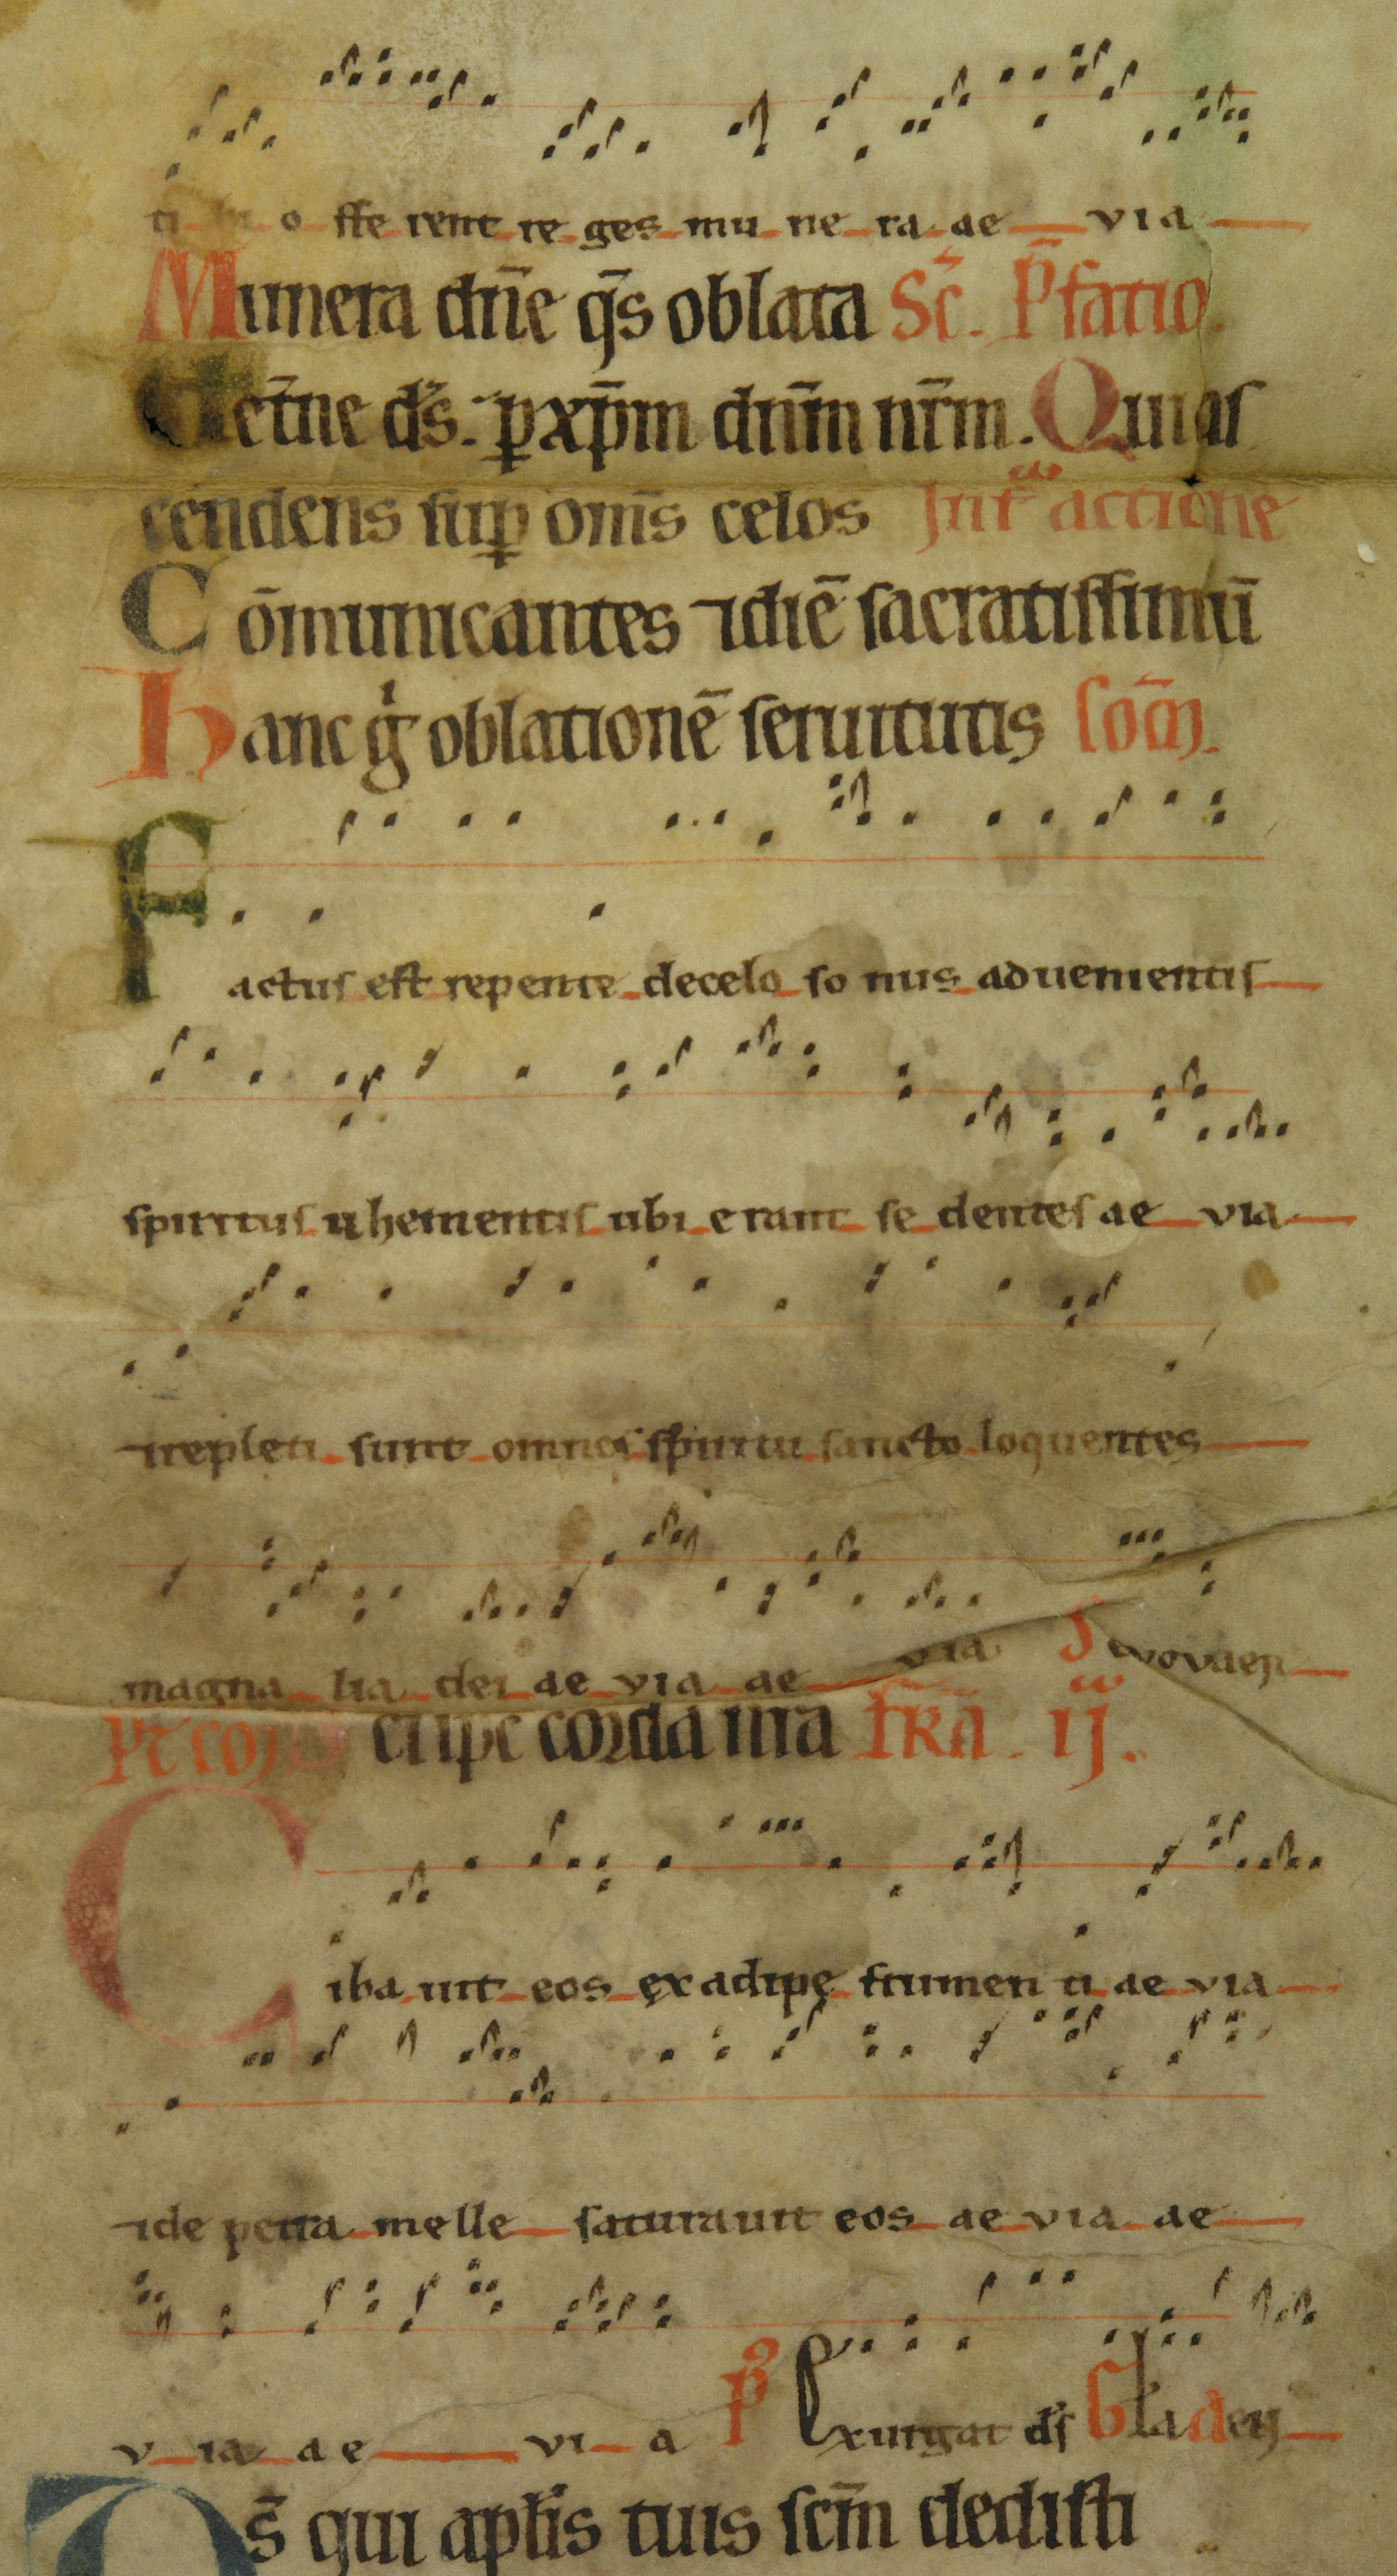 ti bi o ffe rent re ges mu ne ra ae via
Munera dn̄e q̄s oblata Sc̄. P̄fatio.
et̄ne ds̄. ꝑ xp̄m dn̄m nr̄m. Qui as
cendens suꝑ om̄s celos Inf̄ actione
Cōmunicantes ⁊ diē sacratissimū
Hanc gͥ oblationē seruitutis com̄.
Factus est repente de celo so nus aduenientis
spiritus uhementis ubi erant se dentes ae via
⁊ repleti sunt omnes spiritu sancto loquentes
magna lia dei ae via ae via S evovaen
Pt com̄ S c̄i sp̄c corda nr̄a fr̄a. ij.
Ciba uit eos ex adipe frumen ti ae via
⁊ de petra melle saturauit eos ae via ae
v ia ae vi a P̄ Exurgat ds̄ Gła den
Ds̄ qui apłis tuis sc̄m dedisti